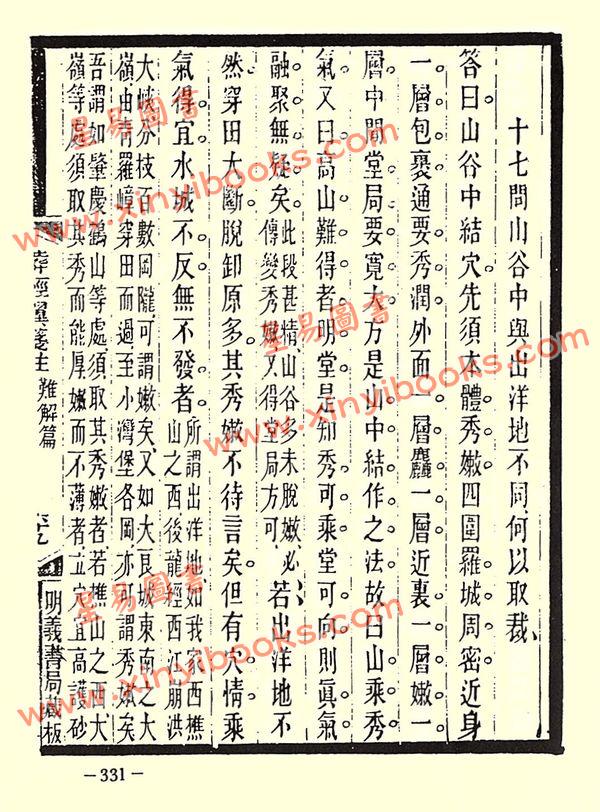 十七問山谷中與出洋地不同何以取裁
答曰山谷中結穴先須本體秀嫩四圍羅城周密近身
一層包裹通要秀潤外而一層麤一層近裏一層嫩一
層中間堂局要寬大方是山中結作之法故曰山乘秀
氣又曰高山難得者明堂是知秀可乘堂可向則眞氣
融聚無疑矣此段甚情山谷多未脫嫩必
傳變秀嫩又得堂局方可若出洋地不
然穿田大斷脫卸原多其秀嫩不待言矣但有穴情乘
氣得宜水城不反無不發者所謂出洋地如我家西樵
山之西後龍經西江崩洪
大峽分枝百數岡隴可謂嫩矣又如大良城東南之大
嶺由青羅嶂穿田而過至小灣堡各岡亦可謂秀嫩矣
吾謂如肇慶鶴山等處須取其秀嫩者若樵山之西大
嶺等處須取其秀而能厚嫩而不薄者立穴宜高護砂
難解篇
明義書局藏板
星易圖書
www.xinyibooks.com
星易圖書
www.xinyibooks.com
星易圖書
www.xinyibooks.com
-331-